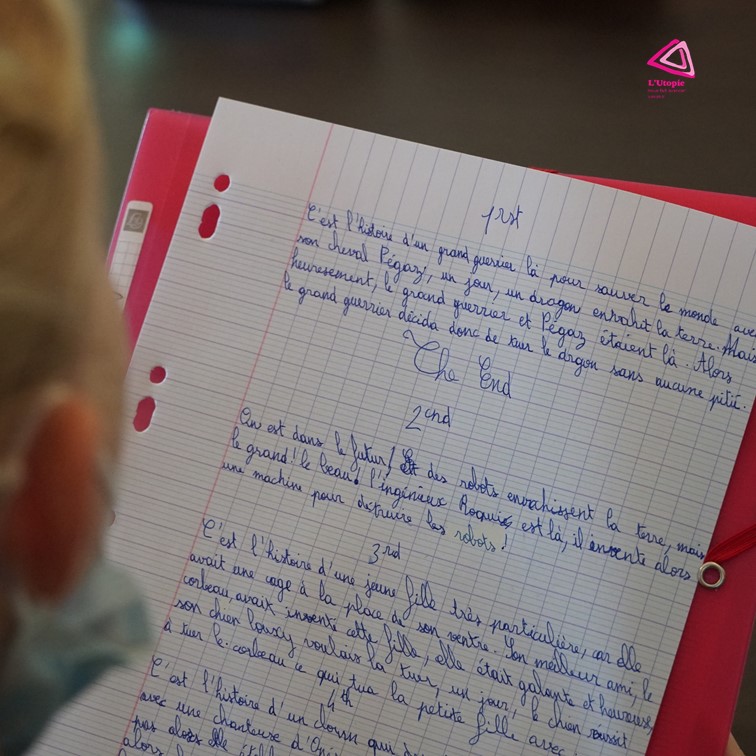 L'Utopie
1rst
C'est l'histoire d'un grand guerrier là pour sauver le monde avec
son cheval Pégaz, un jour, un dragon envahit la terre. Mais
heuresement, le grand guerrier et Pégaz étaient là. Alors
le grand guerrier décida donc de tuer le drgon sans aucune pitié.
The End
2cnd
On est dans le futur! des robots envahissent la terre, mais
le grand! le beau! l'ingénieux Roquis est là, il invente alors
une machine pour détruire les robots!
3rd
C'est l'histoire d'une jeune fille très particulière, car elle
avait une cage à la place de son ventre. Son meilleur ami, le
corbeau, avait inventé cette fille, elle était galante et heureuse,
son chien voulais la tuer, un jour, le chien réussit
à tuer le corbeau ce qui tua la petite fille avec
4th
C'est l'histoire d'un clown qui
avec une chanteuse
pas alors elle
alors